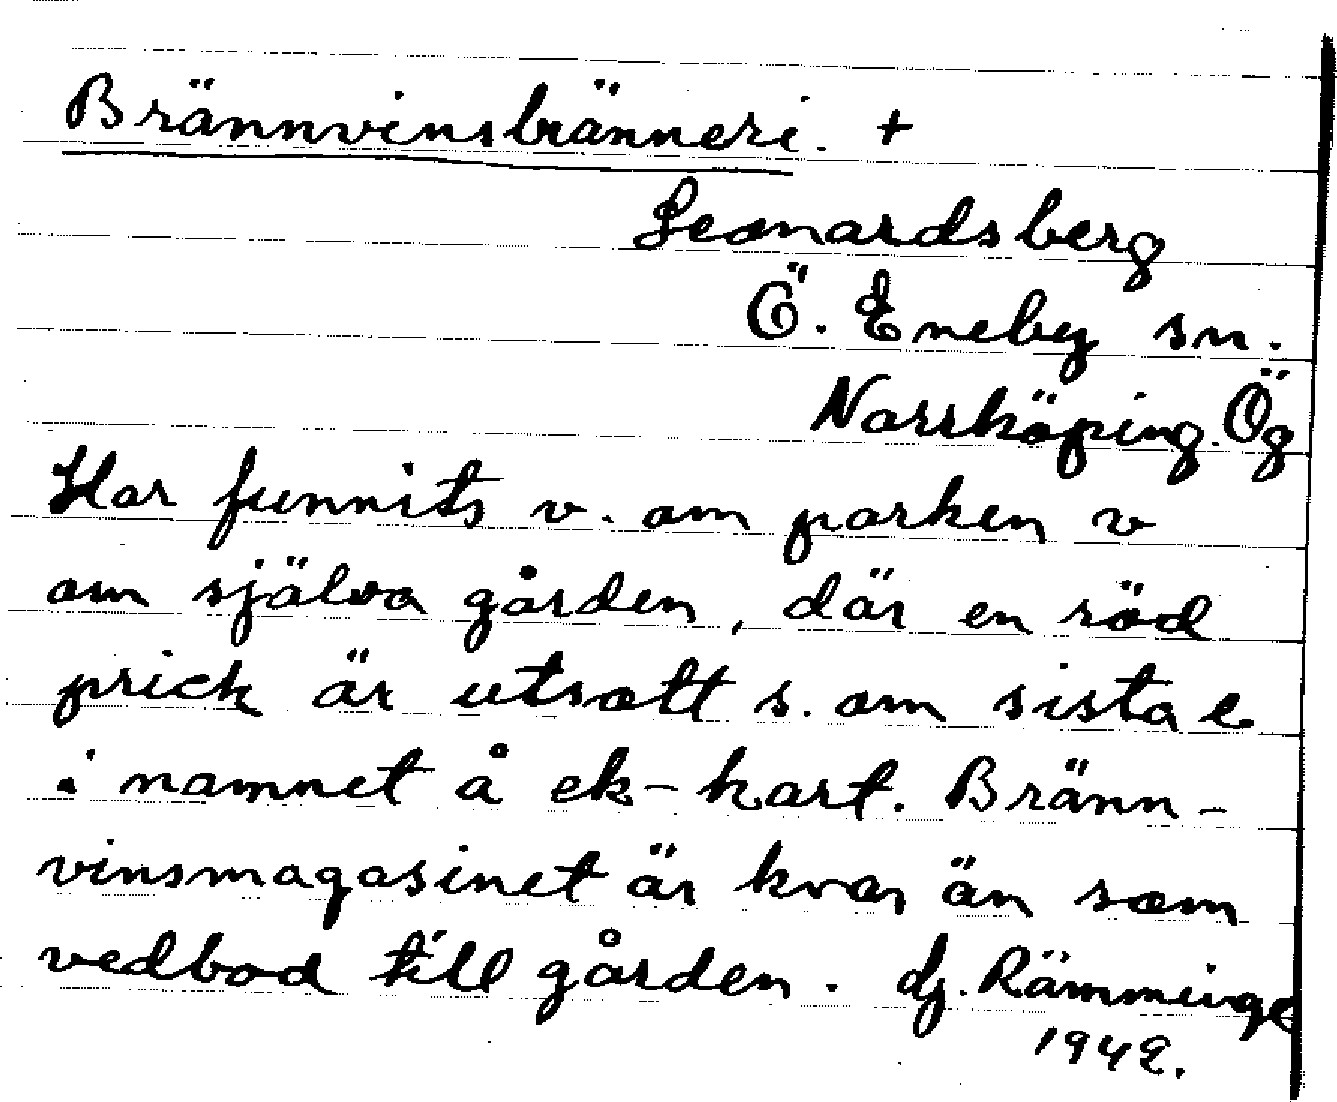 Brännvinsbränneri. +
Leonardsberg
Ö. Eneby sn.
Norrköping. Ög
Har funnits v. om parken v
om själva gården, där en röd
prick är utsatt s. om sista e
i namnet å ek-kart. Bränn-
vinsmagasinet är kvar än som
vedbod till gården. dj. Rämminge
1942.